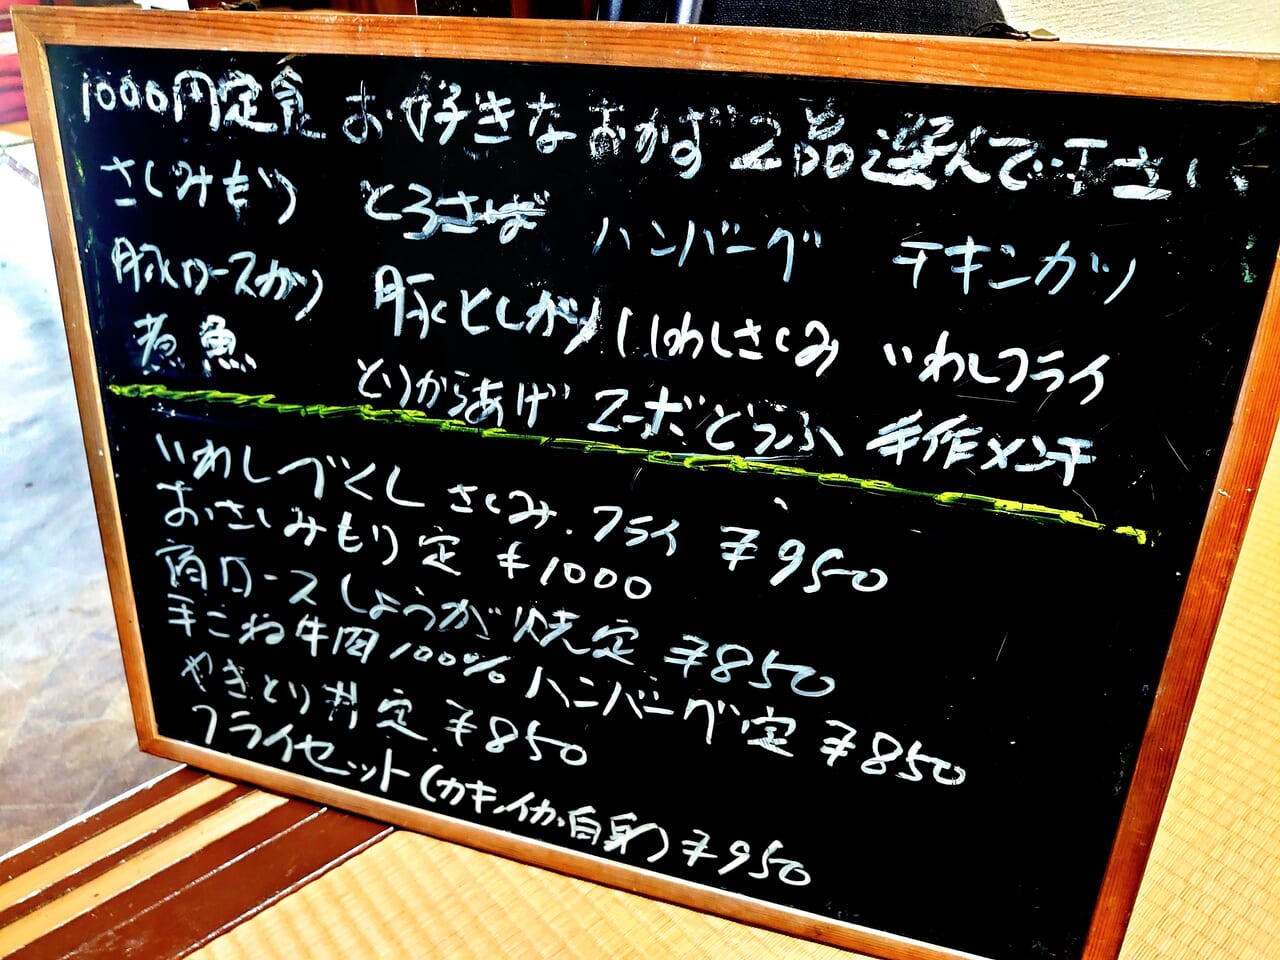 1000円定食 お好きなおかず2品選んで下さい
さしみもり とろさば ハンバーグ チキンカツ
豚ロースカツ 豚としがり いわしさしみ いわしフライ
煮魚 とりからあげ マーボどうふ 手作メンチ
いわしづくし さしみ.フライ ¥950
おさしみもり定 ¥1000
肩ロースしょうが焼定 ¥850
手こね牛肉100%ハンバーグ定 ¥850
やきとり丼定 ¥850
フライセット(カキ,イカ,白身) ¥950